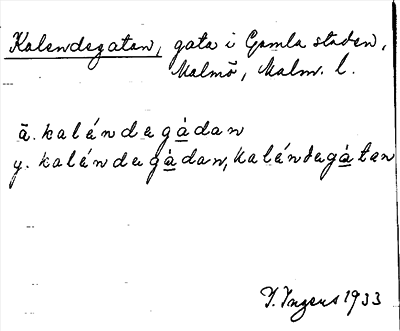 Kalendegatan, gata i Gamla staden,
Malmö, Malm. l.
ä. kaléndegàdan
y. kaléndegàdan, kaléndegàtan
I. Ingers 1933